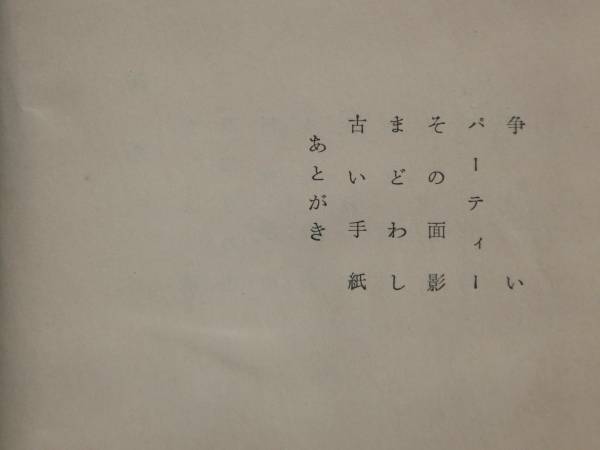 争い
パーティー
その面影
まどわし
古い手紙
あとがき